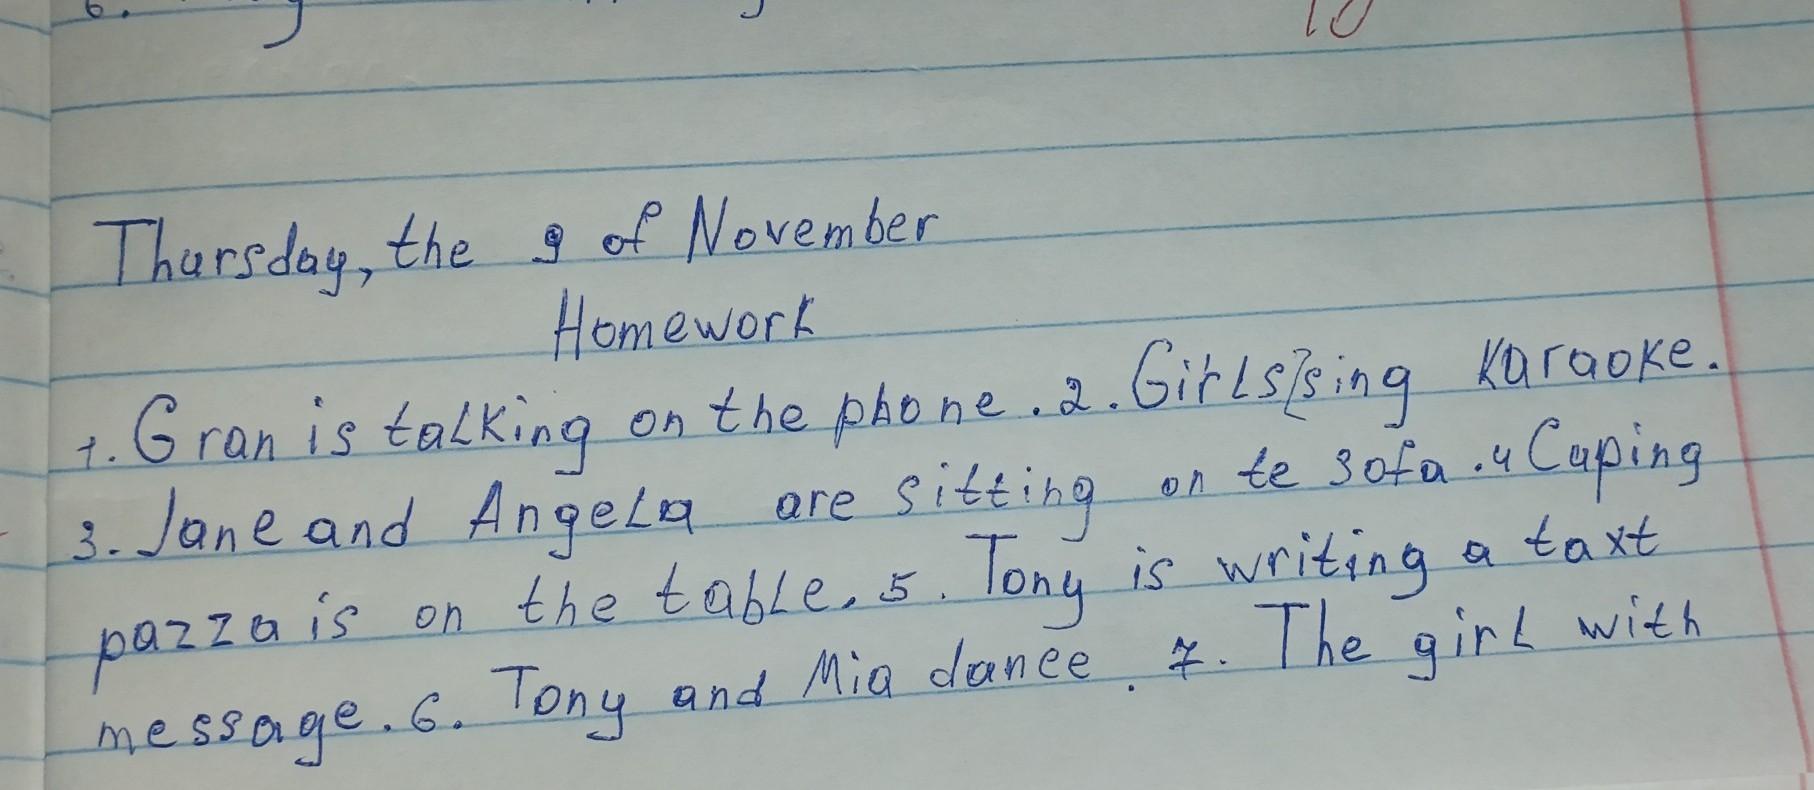 6.
10
Thursday, the 9 of November
Homework
1. Gran is talking on the phone. 2. Girls sing karaoke.
3. Jane and Angela are sitting on te sofa. 4 Caping
pazza is on the table. 5. Tony is writing a taxt
message. 6. Tony and Mia dance. 7. The girl with